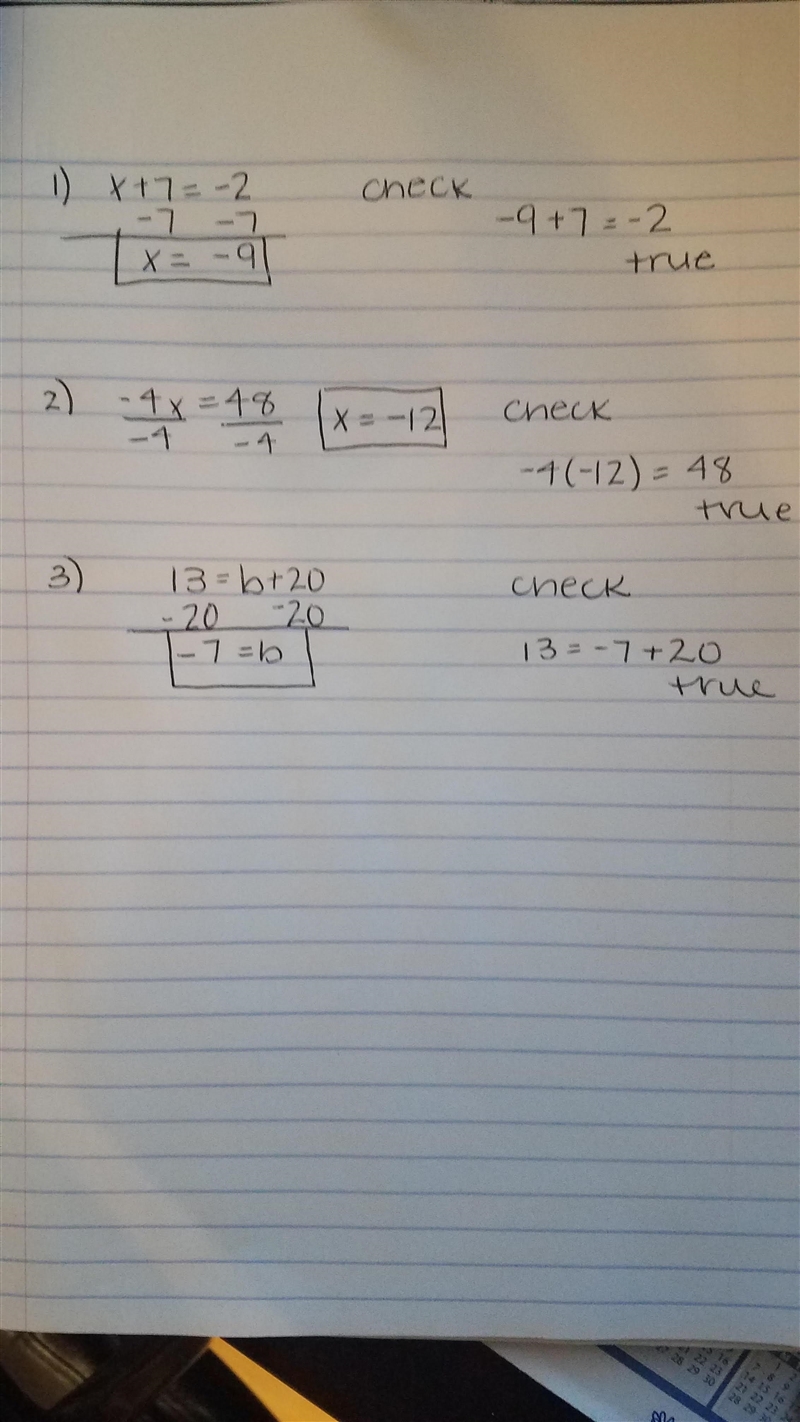 1) x+7 = -2 check
-7 -7 -9+7 = -2
x = -9 true
2) -4x = 48 x = -12 check
-4 -4
-4(-12) = 48
true
3) 13 = b+20 check
-20 -20
-7 = b 13 = -7+20
true